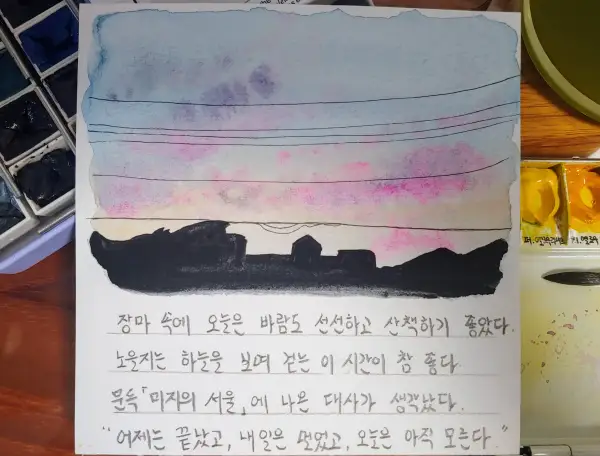 장마 속에 오늘은 바람도 선선하고 산책하기 좋았다.
노을지는 하늘을 보며 걷는 이 시간이 참 좋다
문득「미지의 서울」에 나온 대사가 생각났다.
"어제는 끝났고, 내일은 멀었고, 오늘은 아직 모른다."